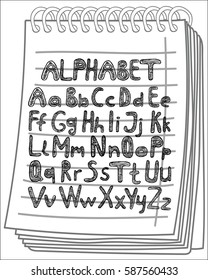 ALPHABET
Aa Bb Cc Dd Ee
Ff Gg Hh Ii Jj Kk
Ll Mm Nn Oo Pp
Qq Rr Ss Tt Uu
Vv Ww Xx Yy Zz
shutterstock.com · 587560433